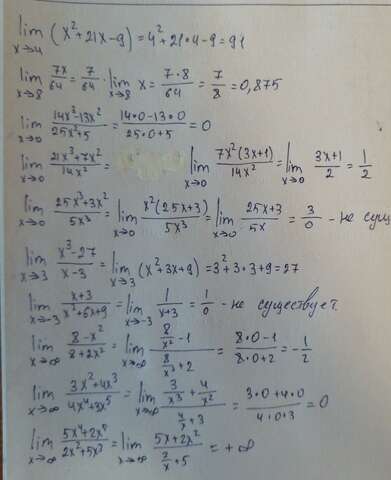 lim x→4 (x²+21x-9) = 4²+21·4-9 = 91
lim x→8 7x/64 = 7/64 · lim x→8 x = 7·8/64 = 7/8 = 0,875
lim x→0 (14x³-13x²)/(25x²+5) = (14·0-13·0)/(25·0+5) = 0
lim x→0 (21x³+7x²)/(14x²) = lim x→0 7x²(3x+1)/(14x²) = lim x→0 (3x+1)/2 = 1/2
lim x→0 (25x³+3x²)/(5x³) = lim x→0 x²(25x+3)/(5x³) = lim x→0 (25x+3)/(5x) = 3/0 - не сущ
lim x→3 (x³-27)/(x-3) = lim x→3 (x²+3x+9) = 3²+3·3+9 = 27
lim x→-3 (x+3)/(x²+6x+9) = lim x→-3 1/(x+3) = 1/0 - не существует
lim x→∞ (8-x²)/(8+2x²) = lim x→∞ (8/x²-1)/(8/x²+2) = (8·0-1)/(8·0+2) = -1/2
lim x→∞ (3x²+4x³)/(4x⁴+3x⁵) = lim x→∞ (3/x³+4/x²)/(4/x+3) = (3·0+4·0)/(4·0+3) = 0
lim x→∞ = lim x→∞ (5x+2x²)/(2/x+5) = +∞